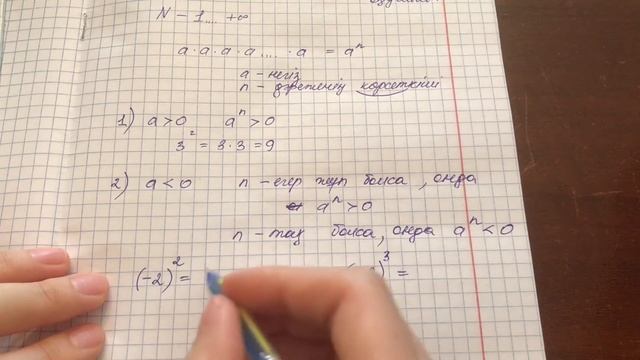 N – 1.... +∞
a·a·a·a.....·a = aⁿ
a – негіз
n – дәреженің көрсеткіші
1) a>0 aⁿ>0
3² = 3·3 = 9
2) a<0 n – егер жұп болса, онда
aⁿ>0
n – тақ болса, онда aⁿ<0
(-2)² = )³ =